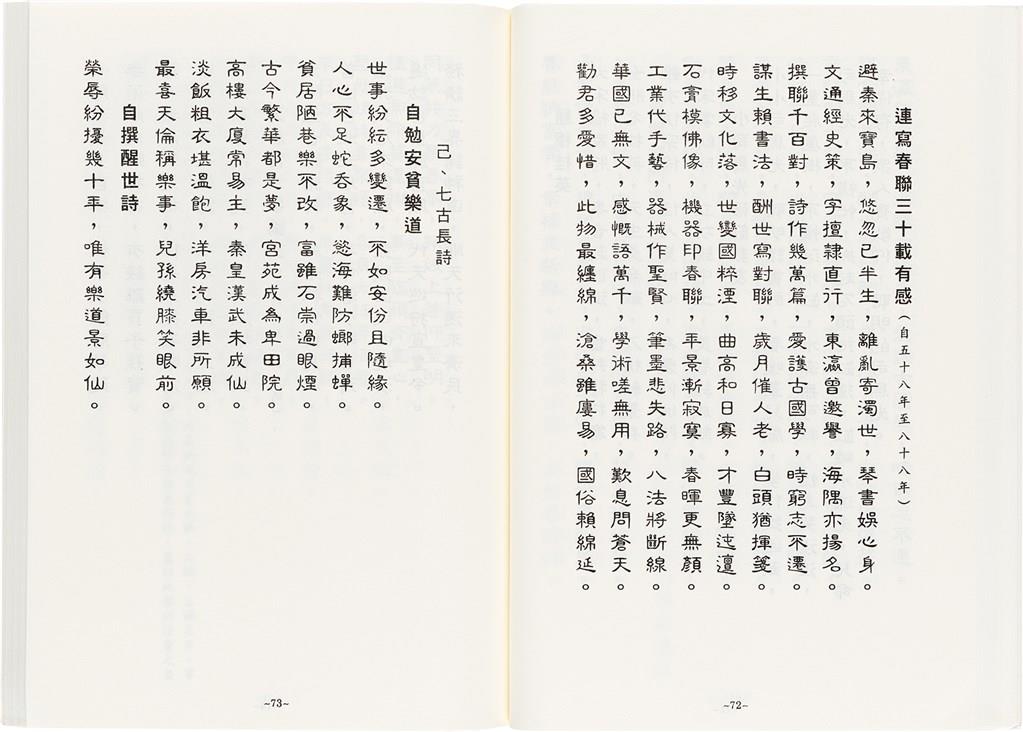 連寫春聯三十載有感（自五十八年至八十八年）
避秦來寶島，悠忽已半生，離亂寄濁世，琴書娛心身。
文通經史策，字擅隸直行，東瀛曾邀譽，海隅亦揚名。
撰聯千百對，詩作幾萬篇，愛護古國學，時窮志不遷。
謀生賴書法，酬世寫對聯，歲月催人老，白頭猶揮箋。
時移文化落，世變國粹湮，曲高和日寡，才豐墜迍邅。
石膏模佛像，機器印春聯，年景漸寂寞，春暉更無顏。
工業代手藝，器械作聖賢，筆墨悲失路，八法將斷線。
華國已無文，感慨語萬千，學術嗟無用，歎息問蒼天。
勸君多愛惜，此物最纏綿，滄桑雖屢易，國俗賴綿延。
~72~
己、七古長詩
自勉安貧樂道
世事紛紜多變遷，不如安份且隨緣。
人心不足蛇吞象，慾海難防螂捕蟬。
貧居陋巷樂不改，富雖石崇過眼煙。
古今繁華都是夢，宮苑成為卑田院。
高樓大廈常易主，秦皇漢武未成仙。
淡飯粗衣堪溫飽，洋房汽車非所願。
最喜天倫稱樂事，兒孫繞膝笑眼前。
自撰醒世詩
榮辱紛擾幾十年，唯有樂道景如仙。
~73~